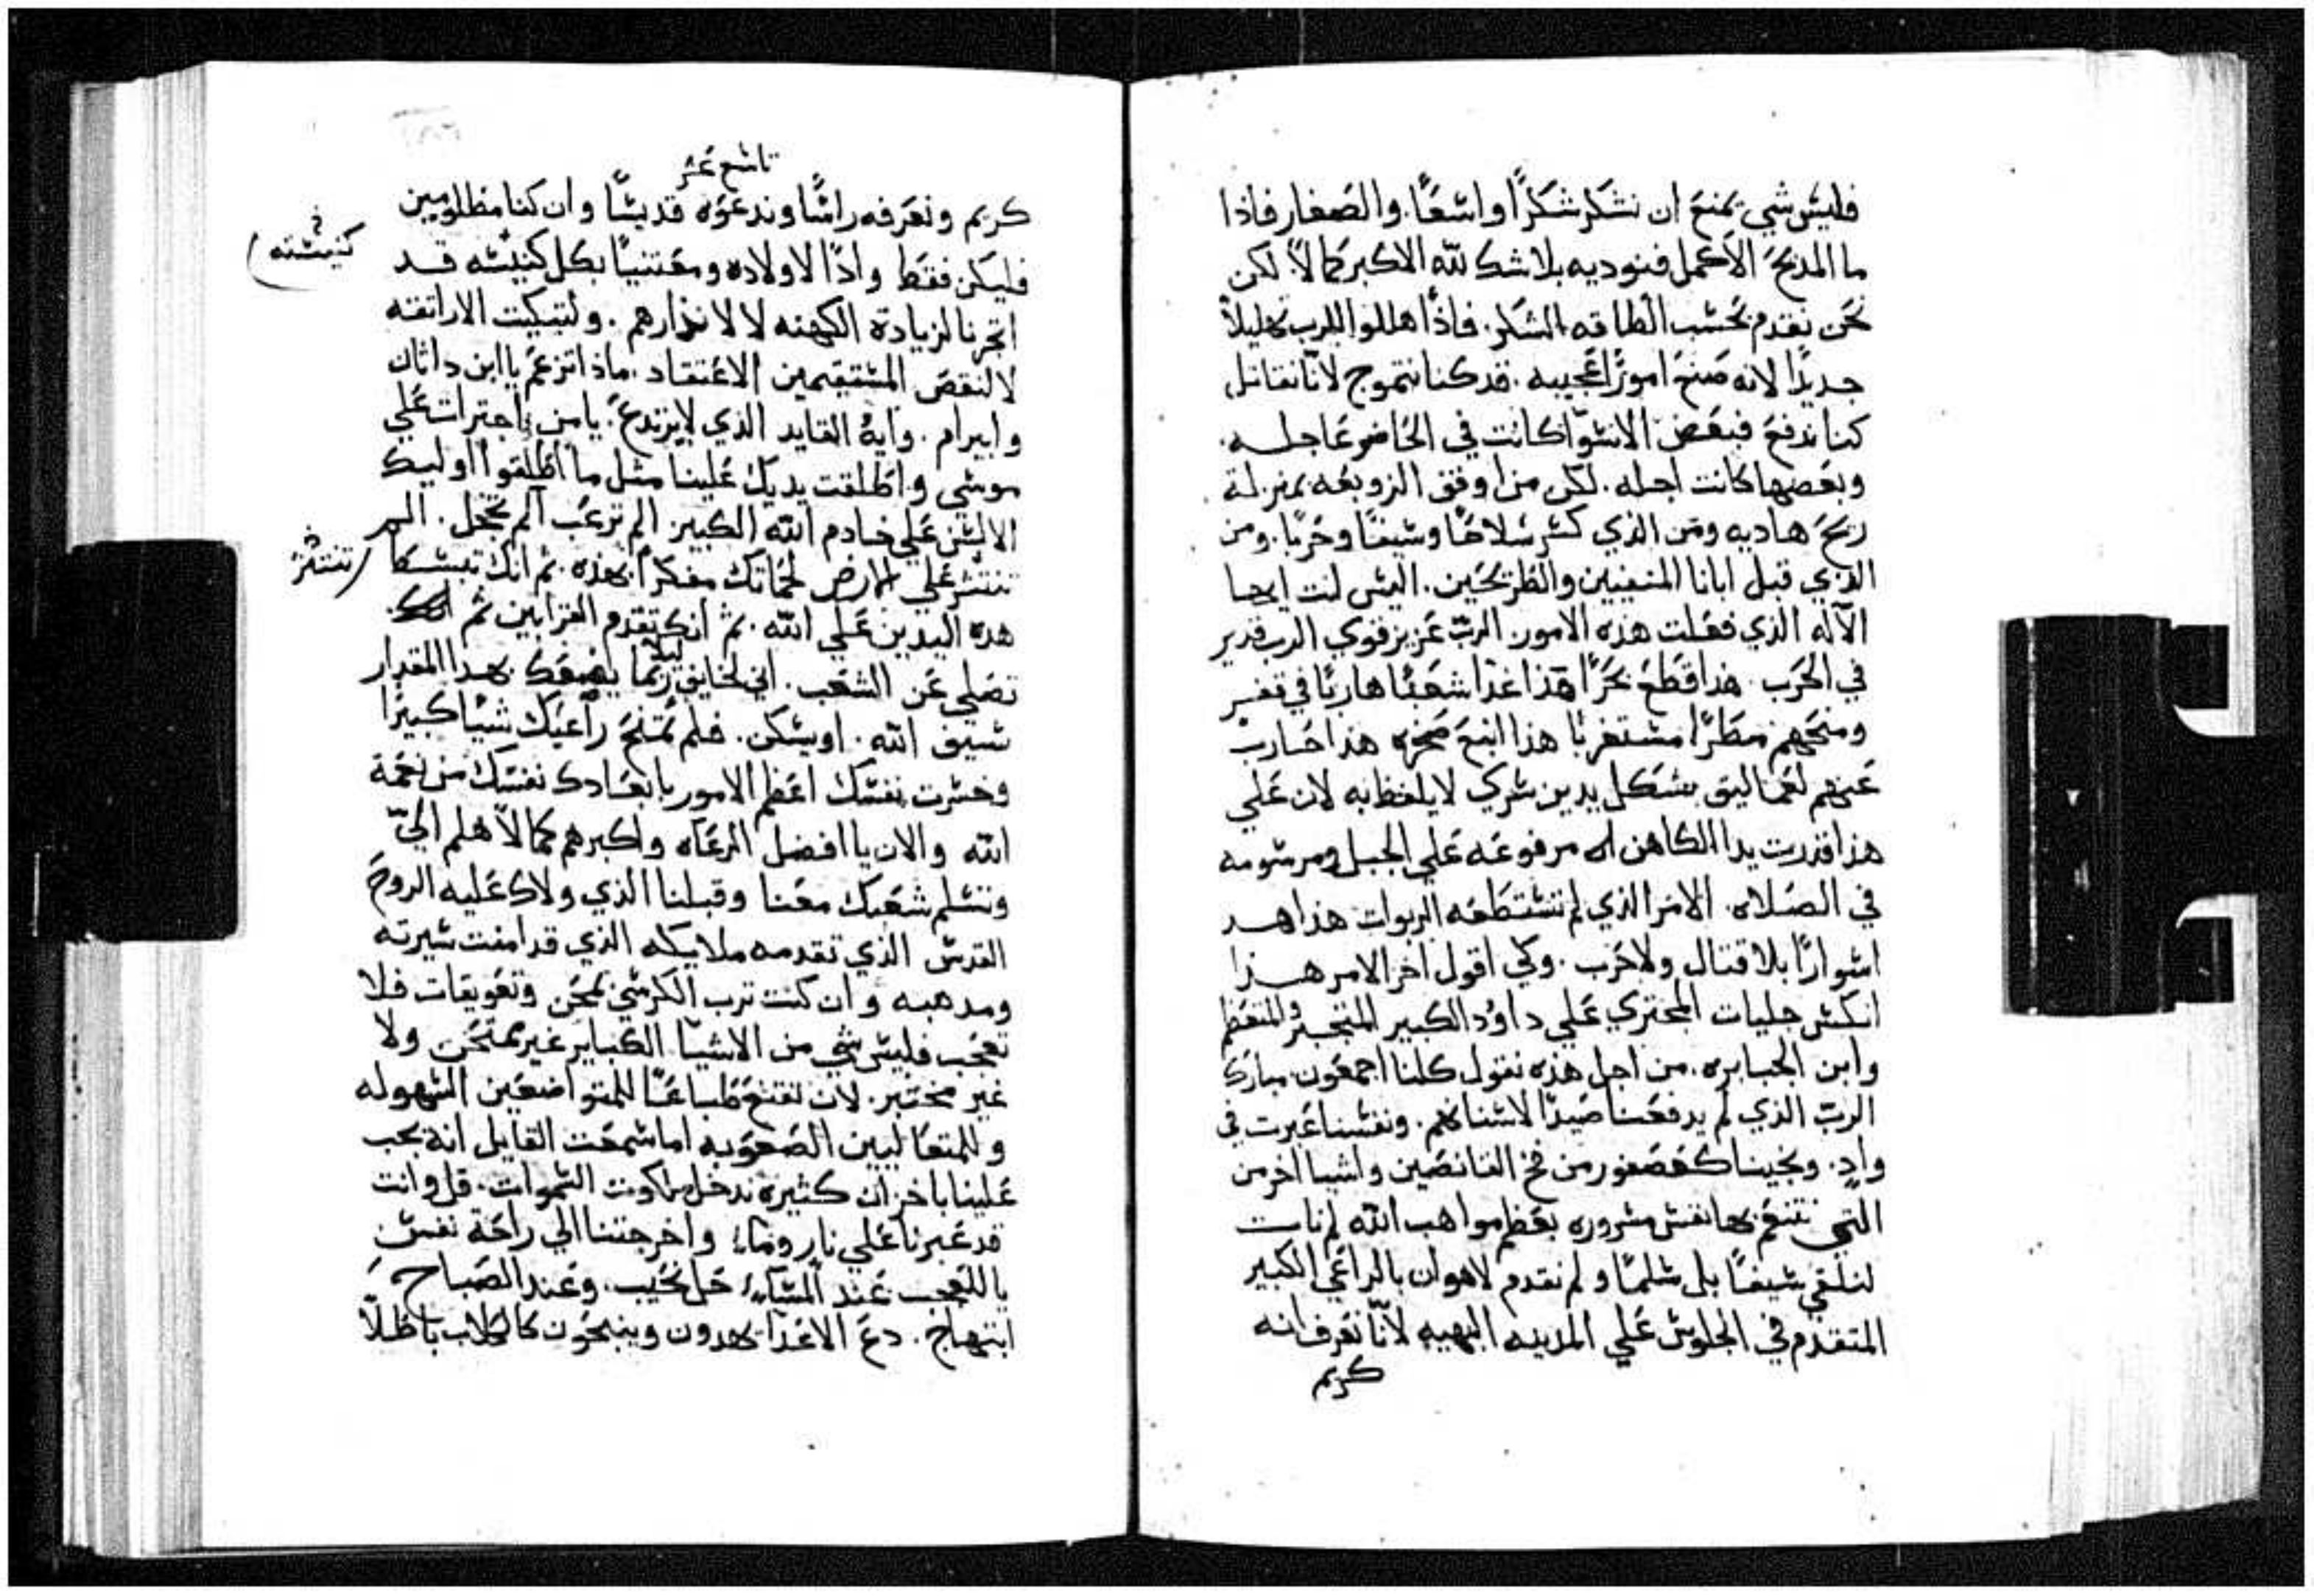 فليس شي يمنع ان نشكر شكرًا واسعًا. والصغار فاذا
ما المديح الأكمل فنوديه بلا شك لله الاكبر كمالاً. لكن
نحن نقدم بحسب الطاقه الشكر. فاذًا هللوا للرب تهليلاً
جديدًا لانه صنع امورًا عجيبه. قد كنا نتموج لانّا نقاتل
كنا ندفع فبعض الاسوا كانت في الحاضر عاجله.
وبعضها كانت اجله. لكن من اوقف الزوبعه بمنزلة
ريح هاديه ومن الذي كسر سلاحًا وسيفًا وحربًا. ومن
الذي قبل ايانا المنفيين والطريحين. اليس انت ايها
الآله الذي فعلت هذه الامور. الربّ عزيز قوي الرب قدير
في الحرب. هذا قطع بحرًا هذا غذا شعبًا هاربًا في قفر
ومنحهم مطرًا مستغربًا هذا انبع صخره هذا حارب
عنهم لعماليق بشكل يدين سري لا يلفظ به لان علي
هذا قدرت يدا الكاهن اله مرفوعه علي الجبل ومرسومه
في الصلاه. الامر الذي لم تستطعه الربوات هذا هد
اسوارًا بلا قتال ولا حرب. وكي اقول اخر الامر هذا
انكس جليات المجتري علي داوُد الكبير المتجبر والمتعظم
وابن الجبابره. من اجل هذه نقول كلنا اجمعون مبارك
الربّ الذي لم يدفعنا صيدًا لاسنانهم. ونفسنا عبرت في
وادٍ. ونجينا كعصفور من فخ القانصين واشيا اخر من
التي تتنعم بها نفس مسروره بعظم مواهب الله لم نات
لنلقي سيفًا بل سلمًا ولم نقدم لاهوان بالراعي الكبير
المتقدم في الجلوس علي المدينه البهيه لانّا نعرف انه
كريم
تاسع عشر
كريم ونعرفه راسًا وندعوه قديسًا وان كنا مظلومين
فليكن فقط وادًا لاولاده ومعتنيًا بكل كنيسه قد
كنيسته
اتجرنا لزيادة الكهنه لا لانذارهم. ولتبكيت الاراتقه
لا لنقص المستقيمين الاعتقاد. ماذا تزعم يا ابن داثان
وابيرام. وايهُ القايد الذي لا يرتدع. يا من اجترات علي
موسي واطلقت يديك علينا مثل ما اطلقوا اوليك
الالسن علي خادم الله الكبير. الم ترعب الم تخجل. الم
تنتثر علي الارض لحمانك مفكرًا بهذه. ثم انك تبسط
تنتثر
هذه اليدين علي الله. ثم انك تقدم القرابين ثم انك
تصلي عن الشعب. اني لخايف ليلا ربما يضعفك بهذا المقدار
سيف الله. او يسكن. فلم تمنح راعيك شيًا كبيرًا
وخسرت نفسك اعظم الامور بابعادك نفسك من نعمة
الله والان يا افضل الرعاه واكبرهم كمالاً هلم اليّ
وتسلم شعبك معنا وقبلنا الذي ولاك عليه الروح
القدس الذي تقدمه ملايكه الذي قد امنت سيرته
ومدهبه وان كنت ترب الكرسي بمحن وتعويقات فلا
تعجب فليس شي من الاشيا الكباير غير ممتحن ولا
غير مختبر. لان تتبع طباعًا للمتواضعين السهوله
وللمتعاليين الصعوبه اما سمعت القايل انه يجب
علينا باحزان كثيره ندخل ملكوت السموات. قل وانت
قد عبرنا علي نار وماءٍ واخرجتنا الي راحة نفس
يا للعجب عند المساء حل نحيب. وعند الصباح
ابتهاج. دع الاعدا يهدون وينبحون كالكلاب باطلاً